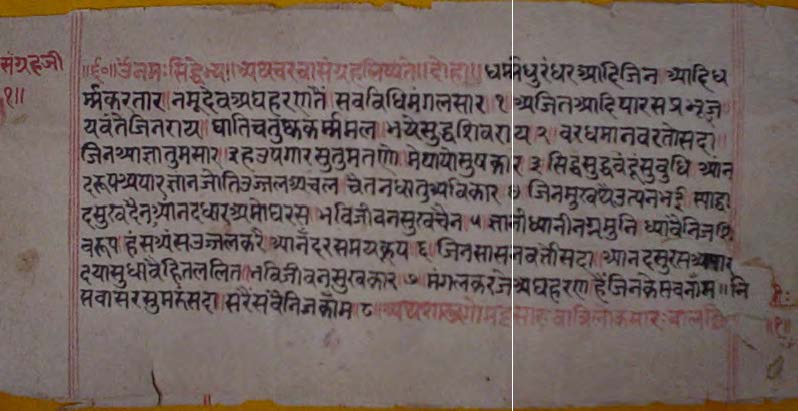 संग्रहजी
१॥
॥६०॥ उं नमः सिद्धेभ्यः॥ अथ चरचा संग्रह लिष्यते॥ दोहा॥ धर्म्मधुरंधर आदिजिन आदिध
र्म्म करतार नमूं देव अघहरण तैं सवविधि मंगलसार १ अजित आदि पारस प्रभू ज
यवंते जिनराय घाति चतुष्क कर्म्ममल भये सुद्ध शिवराय २ वरधमान वरतो सदा
जिन आज्ञा तुमसार उपगार सु तुम तणो मे पायो सुषकार ३ सिद्ध सुद्ध वंदूं सुबुधि आनं
दरूप अपार ज्ञानजोति उज्जल अचल चेतनधातु अविकार ४ जिनमुखथै उतपन भई स्याद्वा
द सुखदैन आनंदधार अमोघरस भविजीवन सुखचैन ५ ज्ञानी ध्यानी नग्न मुनि ध्यावै निज
वरूप हंस अंस उज्जल करै आनंद रसमय कूप ६ जिनसासन वर्त्तो सदा आनंद सुरस
दया सुधावै हित ललित भविजीवन सुखकार ७ मंगलकर जे अघहरण हैं जिनके सव नांम॥ नि
सवासर सुमरूं सदा सरैं सवै निज कांम ८